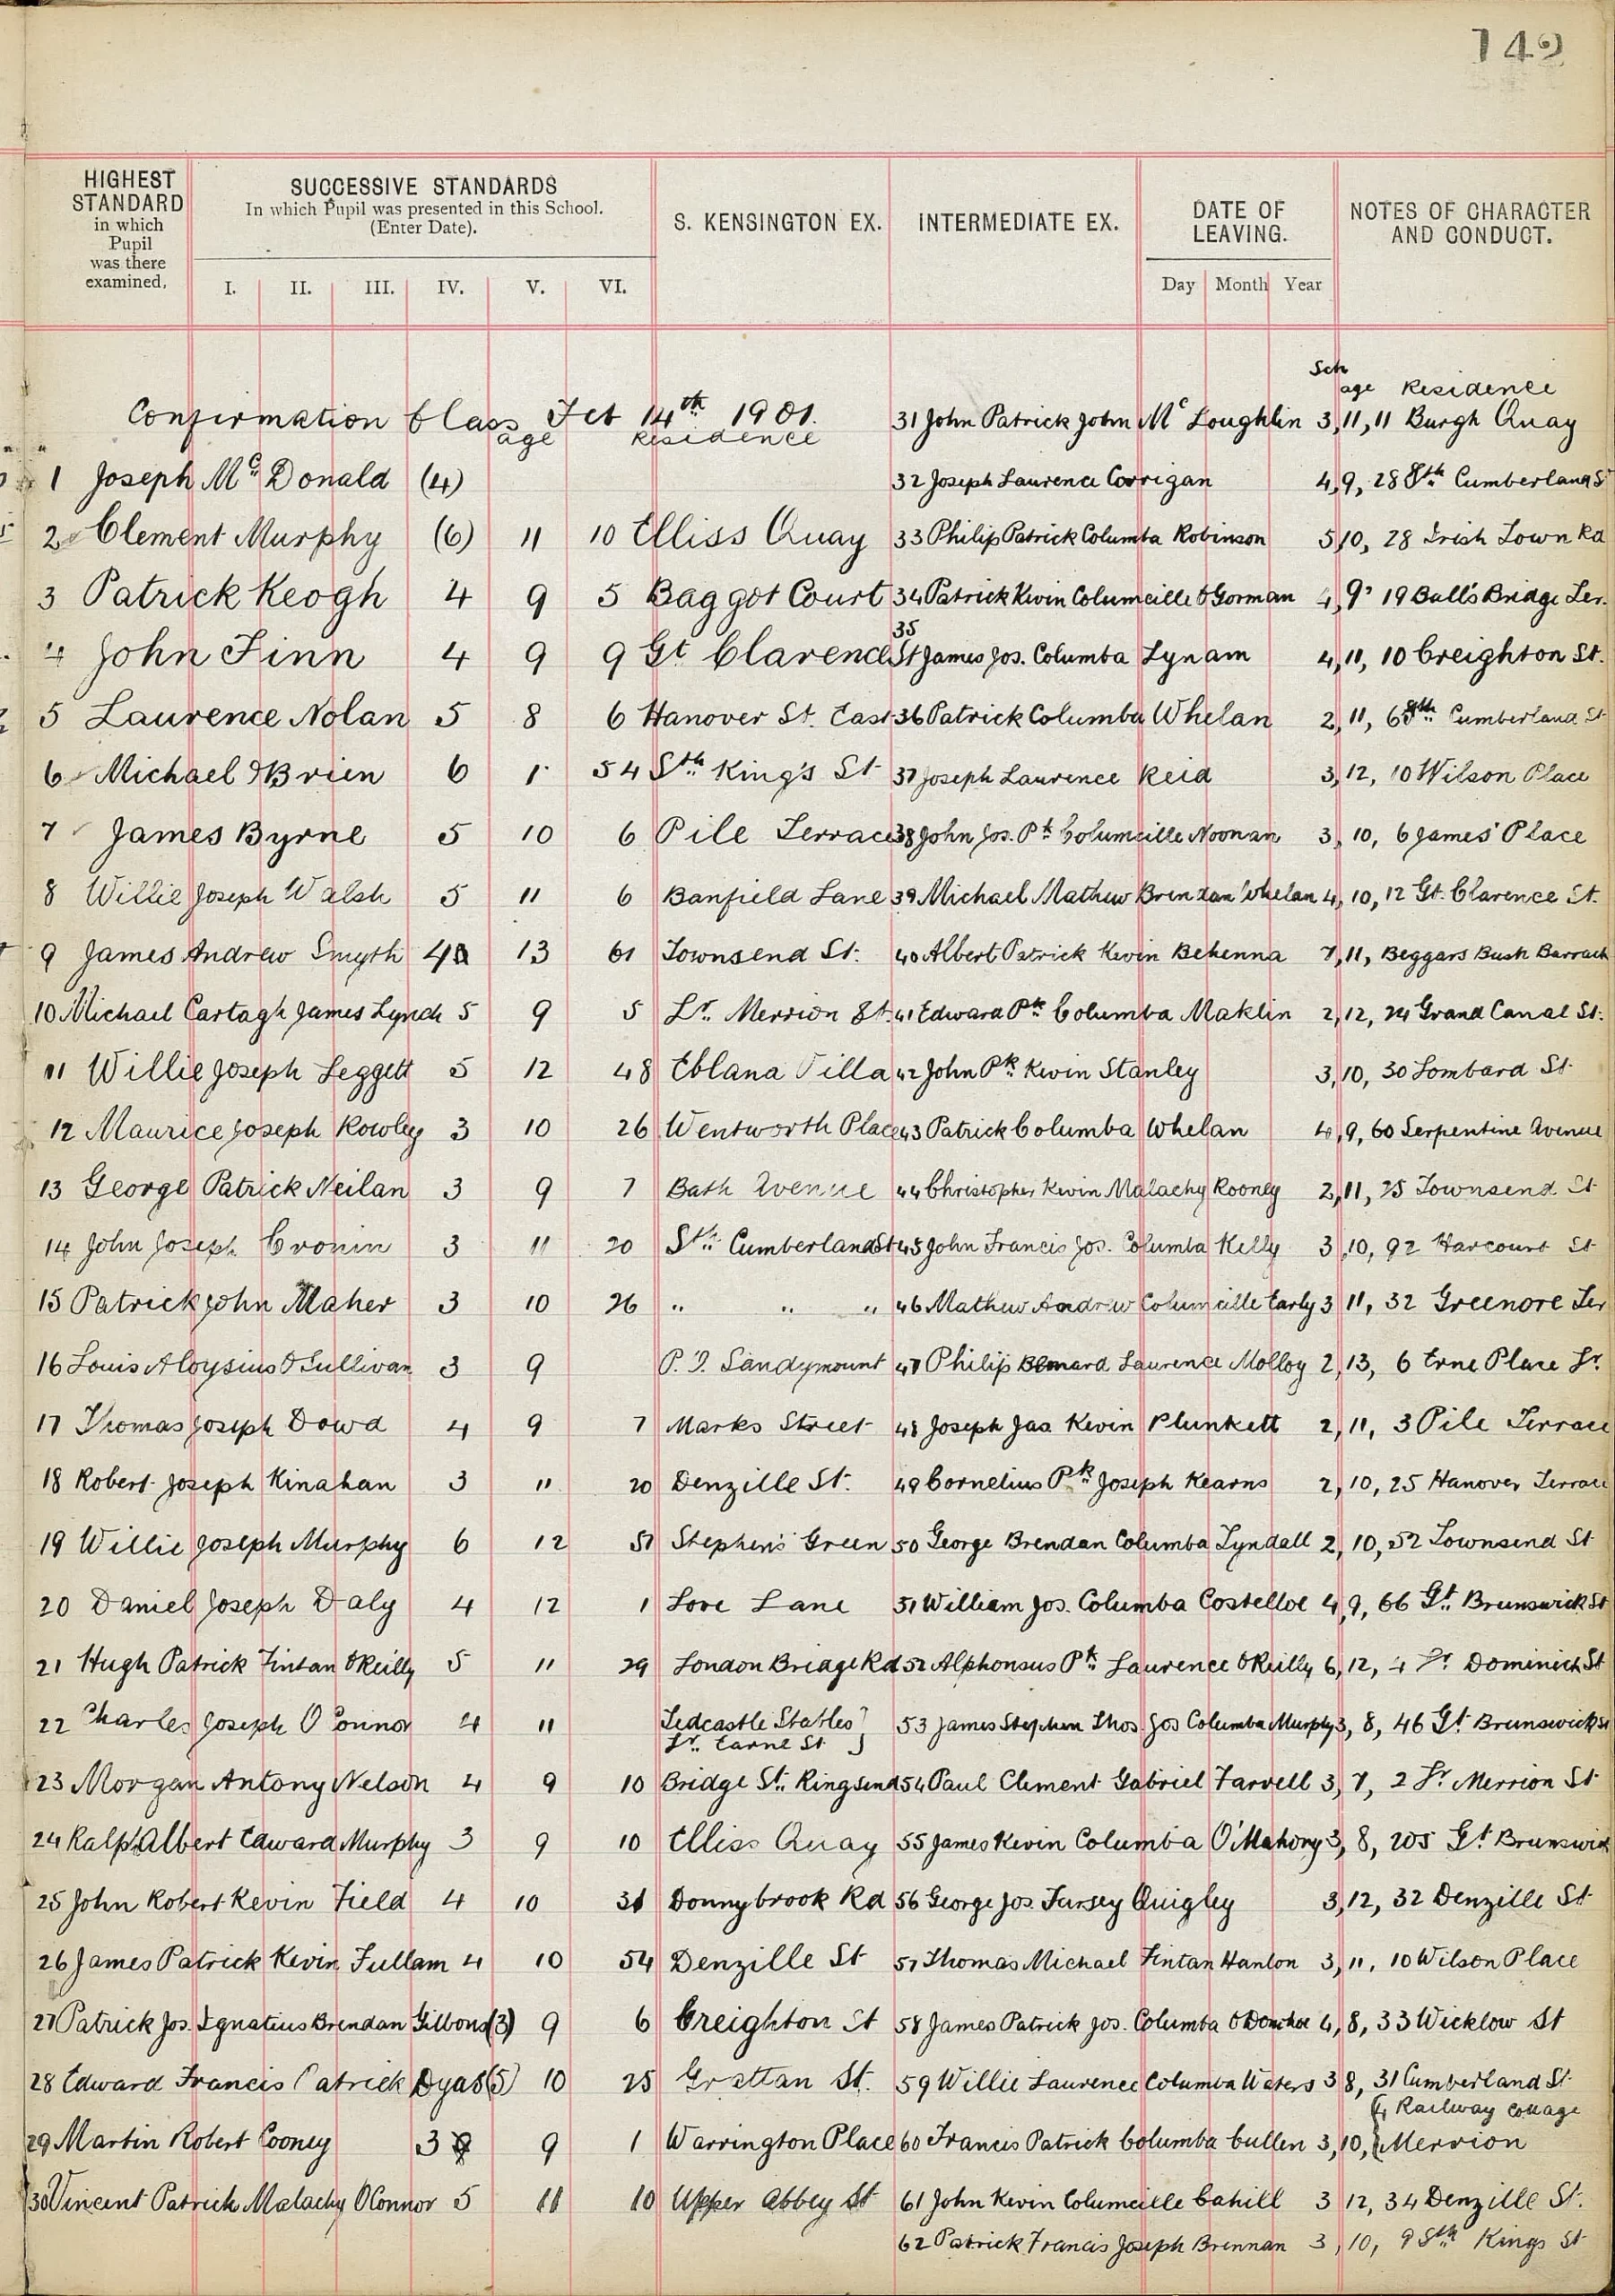 149
HIGHEST STANDARD in which Pupil was there examined.
SUCCESSIVE STANDARDS
In which Pupil was presented in this School.
(Enter Date).
I. II. III. IV. V. VI.
S. KENSINGTON EX.
INTERMEDIATE EX.
DATE OF LEAVING.
Day Month Year
NOTES OF CHARACTER AND CONDUCT.
Confirmation Class 14th 1901.
age Residence
1 Joseph Mc Donald (4)
2 Clement Murphy (6) 11 10 Elliss Quay
3 Patrick Keogh 4 9 5 Baggot Court
4 John Finn 4 9 9 Gt Clarence St
5 Laurence Nolan 5 8 6 Hanover St. East
6 Michael O'Brien 6 54 Sth King's St
7 James Byrne 5 10 6 Pile Terrace
8 Willie Joseph Walsh 5 11 6 Banfield Lane
9 James Andrew Smyth 4 13 61 Townsend St.
10 Michael Cartagh James Lynch 5 9 5 Lr. Merrion St.
11 Willie Joseph Leggett 5 12 48 Eblana Villa
12 Maurice Joseph Rowley 3 10 26 Wentworth Place
13 George Patrick Neilan 3 9 7 Bath Avenue
14 John Joseph Cronin 3 11 20 Sth Cumberland St
15 Patrick John Maher 3 10 26 " " "
16 Louis Aloysius O'Sullivan 3 9 Sandymount
17 Thomas Joseph Dowd 4 9 7 Marks Street
18 Robert Joseph Kinahan 3 11 20 Denzille St.
19 Willie Joseph Murphy 6 12 51 Stephen's Green
20 Daniel Joseph Daly 4 12 1 Love Lane
21 Hugh Patrick Fintan O'Reilly 5 11 29 London Bridge Rd
22 Charles Joseph O'Connor 4 11 Tedcastle Stables
Lr. Earne St
23 Morgan Antony Nelson 4 9 10 Bridge St. Ringsend
24 Ralph Albert Edward Murphy 3 9 10 Elliss Quay
25 John Robert Kevin Field 4 10 31 Donnybrook Rd
26 James Patrick Kevin Fullam 4 10 54 Denzille St
27 Patrick Jos. Ignatius Brendan Gibbons (3) 9 6 Creighton St
28 Edward Francis Patrick Dyas (5) 10 25 Grattan St.
29 Martin Robert Cooney 3 9 1 Warrington Place
30 Vincent Patrick Malachy O'Connor 5 11 10 Upper Abbey St
Sch age Residence
31 John Patrick John Mc Loughlin 3, 11, 11 Burgh Quay
32 Joseph Laurence Corrigan 4, 9, 28 Sth Cumberland St
33 Philip Patrick Columba Robinson 5, 10, 28 Irish Town Rd
34 Patrick Kevin Columcille O'Gorman 4, 9, 19 Ball's Bridge Ter.
35 James Jos. Columba Lynam 4, 11, 10 Creighton St.
36 Patrick Columba Whelan 2, 11, 6 Sth Cumberland St
37 Joseph Laurence Reid 3, 12, 10 Wilson Place
38 John Jos. Pk Columcille Noonan 3, 10, 6 James' Place
39 Michael Mathew Brendan Whelan 4, 10, 12 Gt. Clarence St.
40 Albert Patrick Kevin Behenna 7, 11, Beggars Bush Barrack
41 Edward Pk Columba Maklin 2, 12, 24 Grand Canal St.
42 John Pk Kevin Stanley 3, 10, 30 Lombard St.
43 Patrick Columba Whelan 4, 9, 60 Serpentine Avenue
44 Christopher Kevin Malachy Rooney 2, 11, 25 Townsend St
45 John Francis Jos. Columba Kelly 3, 10, 92 Harcourt St
46 Mathew Andrew Columcille Early 3 11, 32 Greenore Ter
47 Philip Bernard Laurence Molloy 2, 13, 6 Erne Place Lr.
48 Joseph Jas. Kevin Plunkett 2, 11, 3 Pile Terrace
49 Cornelius Pk Joseph Kearns 2, 10, 25 Hanover Terrace
50 George Brendan Columba Tyndall 2, 10, 52 Townsend St
51 William Jos. Columba Costelloe 4, 9, 66 Gt. Brunswick St
52 Alphonsus Pk Laurence O'Reilly 6, 12, 4 Lr Dominick St
53 James Stephen Thos. Jos Columba Murphy 3, 8, 46 Gt Brunswick St
54 Paul Clement Gabriel Farvell 3, 7, 2 Lr Merrion St
55 James Kevin Columba O'Mahony 3, 8, 205 Gt Brunswick
56 George Jos. Fursey Quigley 3, 12, 32 Denzille St
57 Thomas Michael Fintan Hanlon 3, 11, 10 Wilson Place
58 James Patrick Jos. Columba 4, 8, 33 Wicklow St
59 Willie Laurence Columba Waters 3 8, 31 Cumberland St
60 Francis Patrick Columba Cullen 3, 10, 4 Railway Cottage
Merrion
61 John Kevin Columcille Cahill 3 12, 34 Denzille St.
62 Patrick Francis Joseph Brennan 3, 10, 9 Sth Kings St